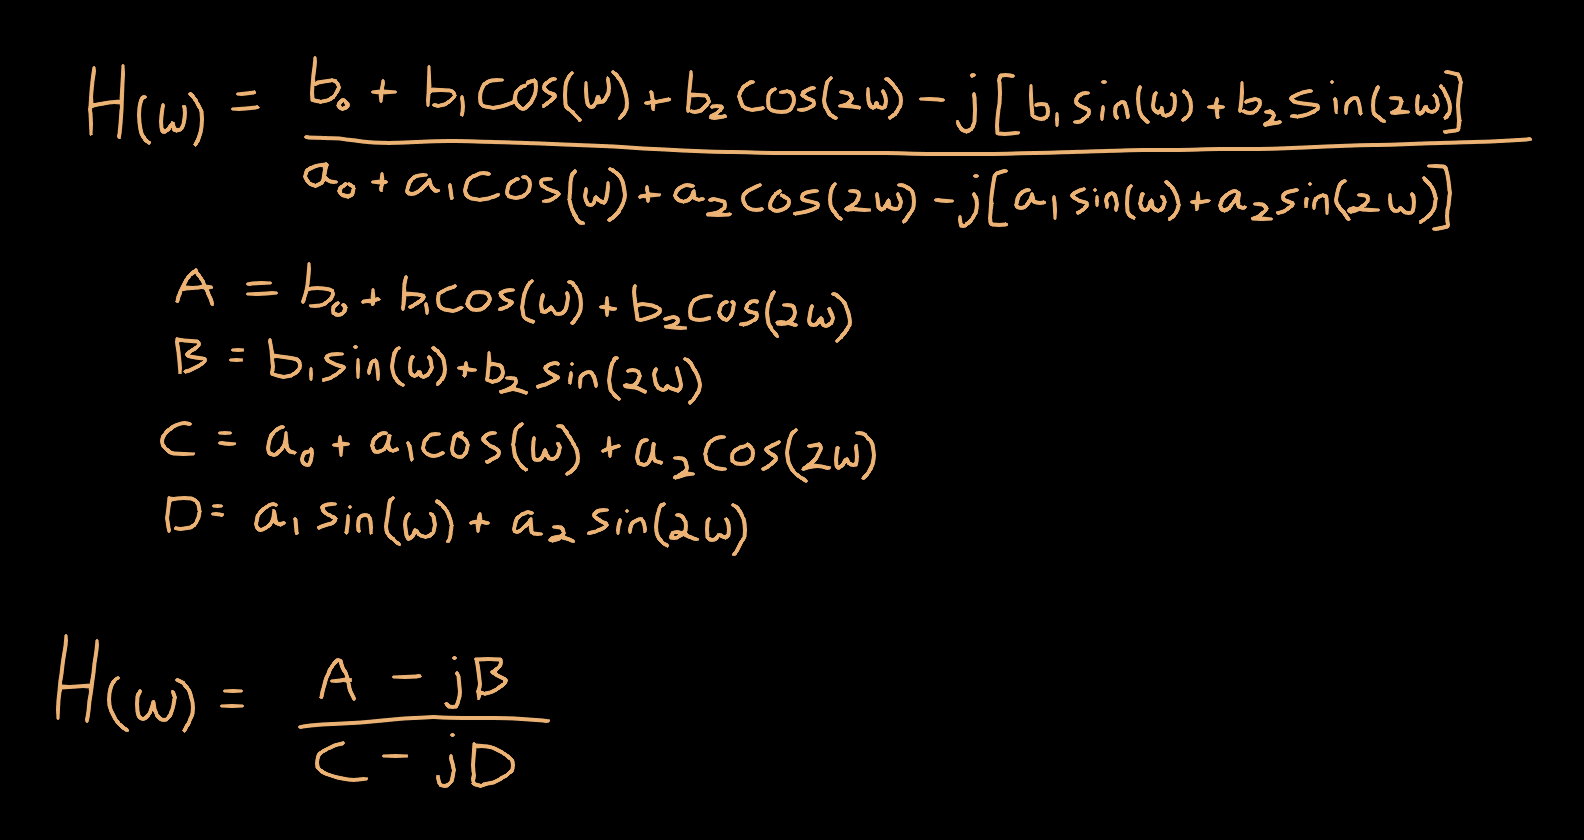 H(ω) = b₀ + b₁cos(ω) + b₂cos(2ω) - j[b₁sin(ω) + b₂sin(2ω)]
a₀ + a₁cos(ω) + a₂cos(2ω) - j[a₁sin(ω) + a₂sin(2ω)]
A = b₀ + b₁cos(ω) + b₂cos(2ω)
B = b₁sin(ω) + b₂sin(2ω)
C = a₀ + a₁cos(ω) + a₂cos(2ω)
D = a₁sin(ω) + a₂sin(2ω)
H(ω) = A - jB
C - jD